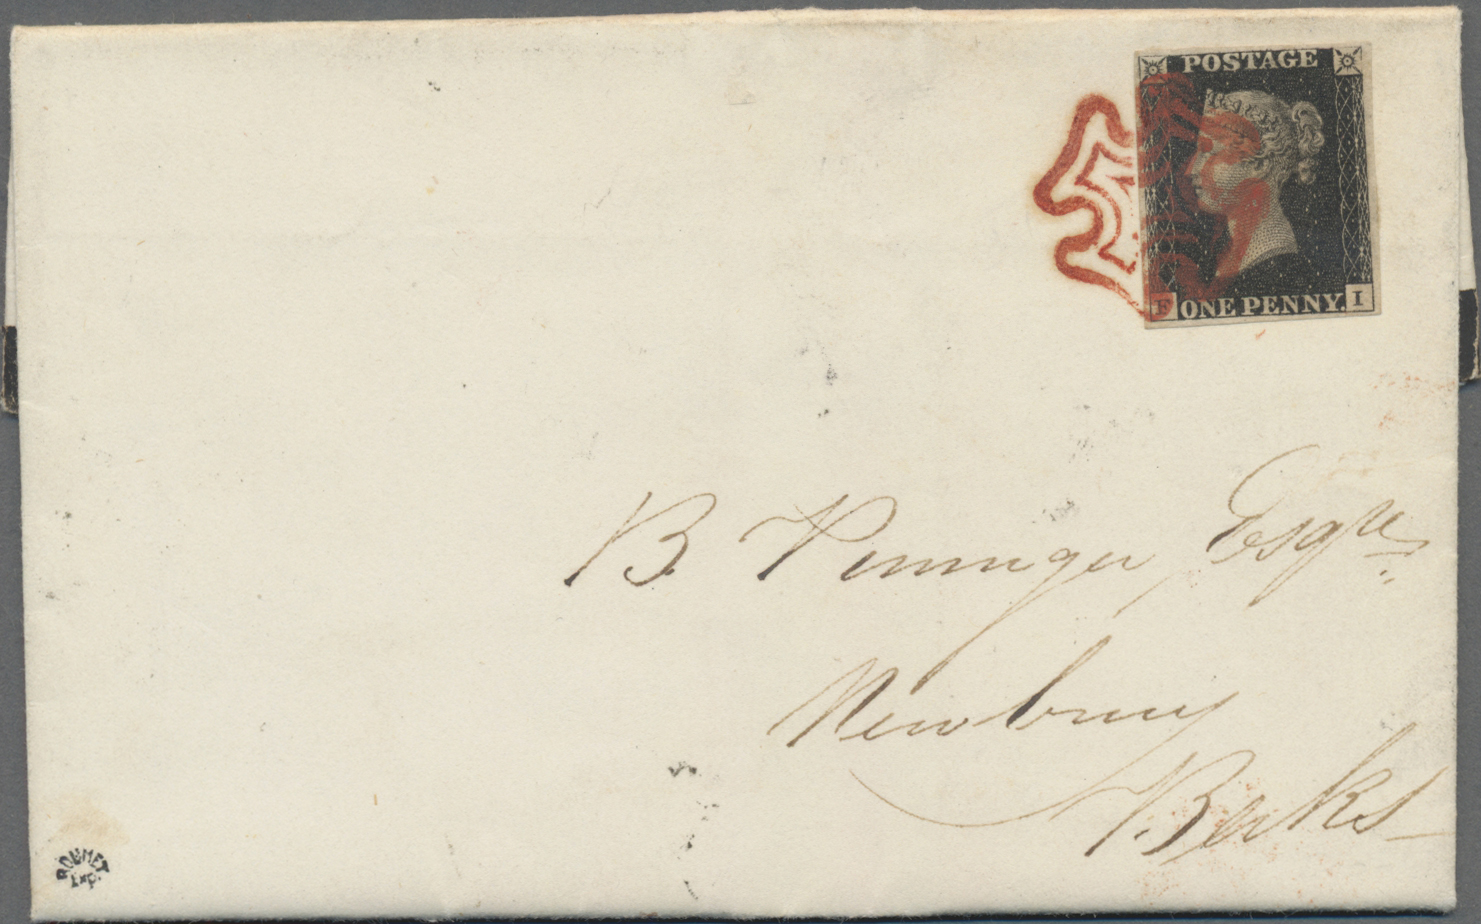 POSTAGE
F ONE PENNY. I
B Penniger Esqre
Newbury
Berks
ROUMET
Exp.